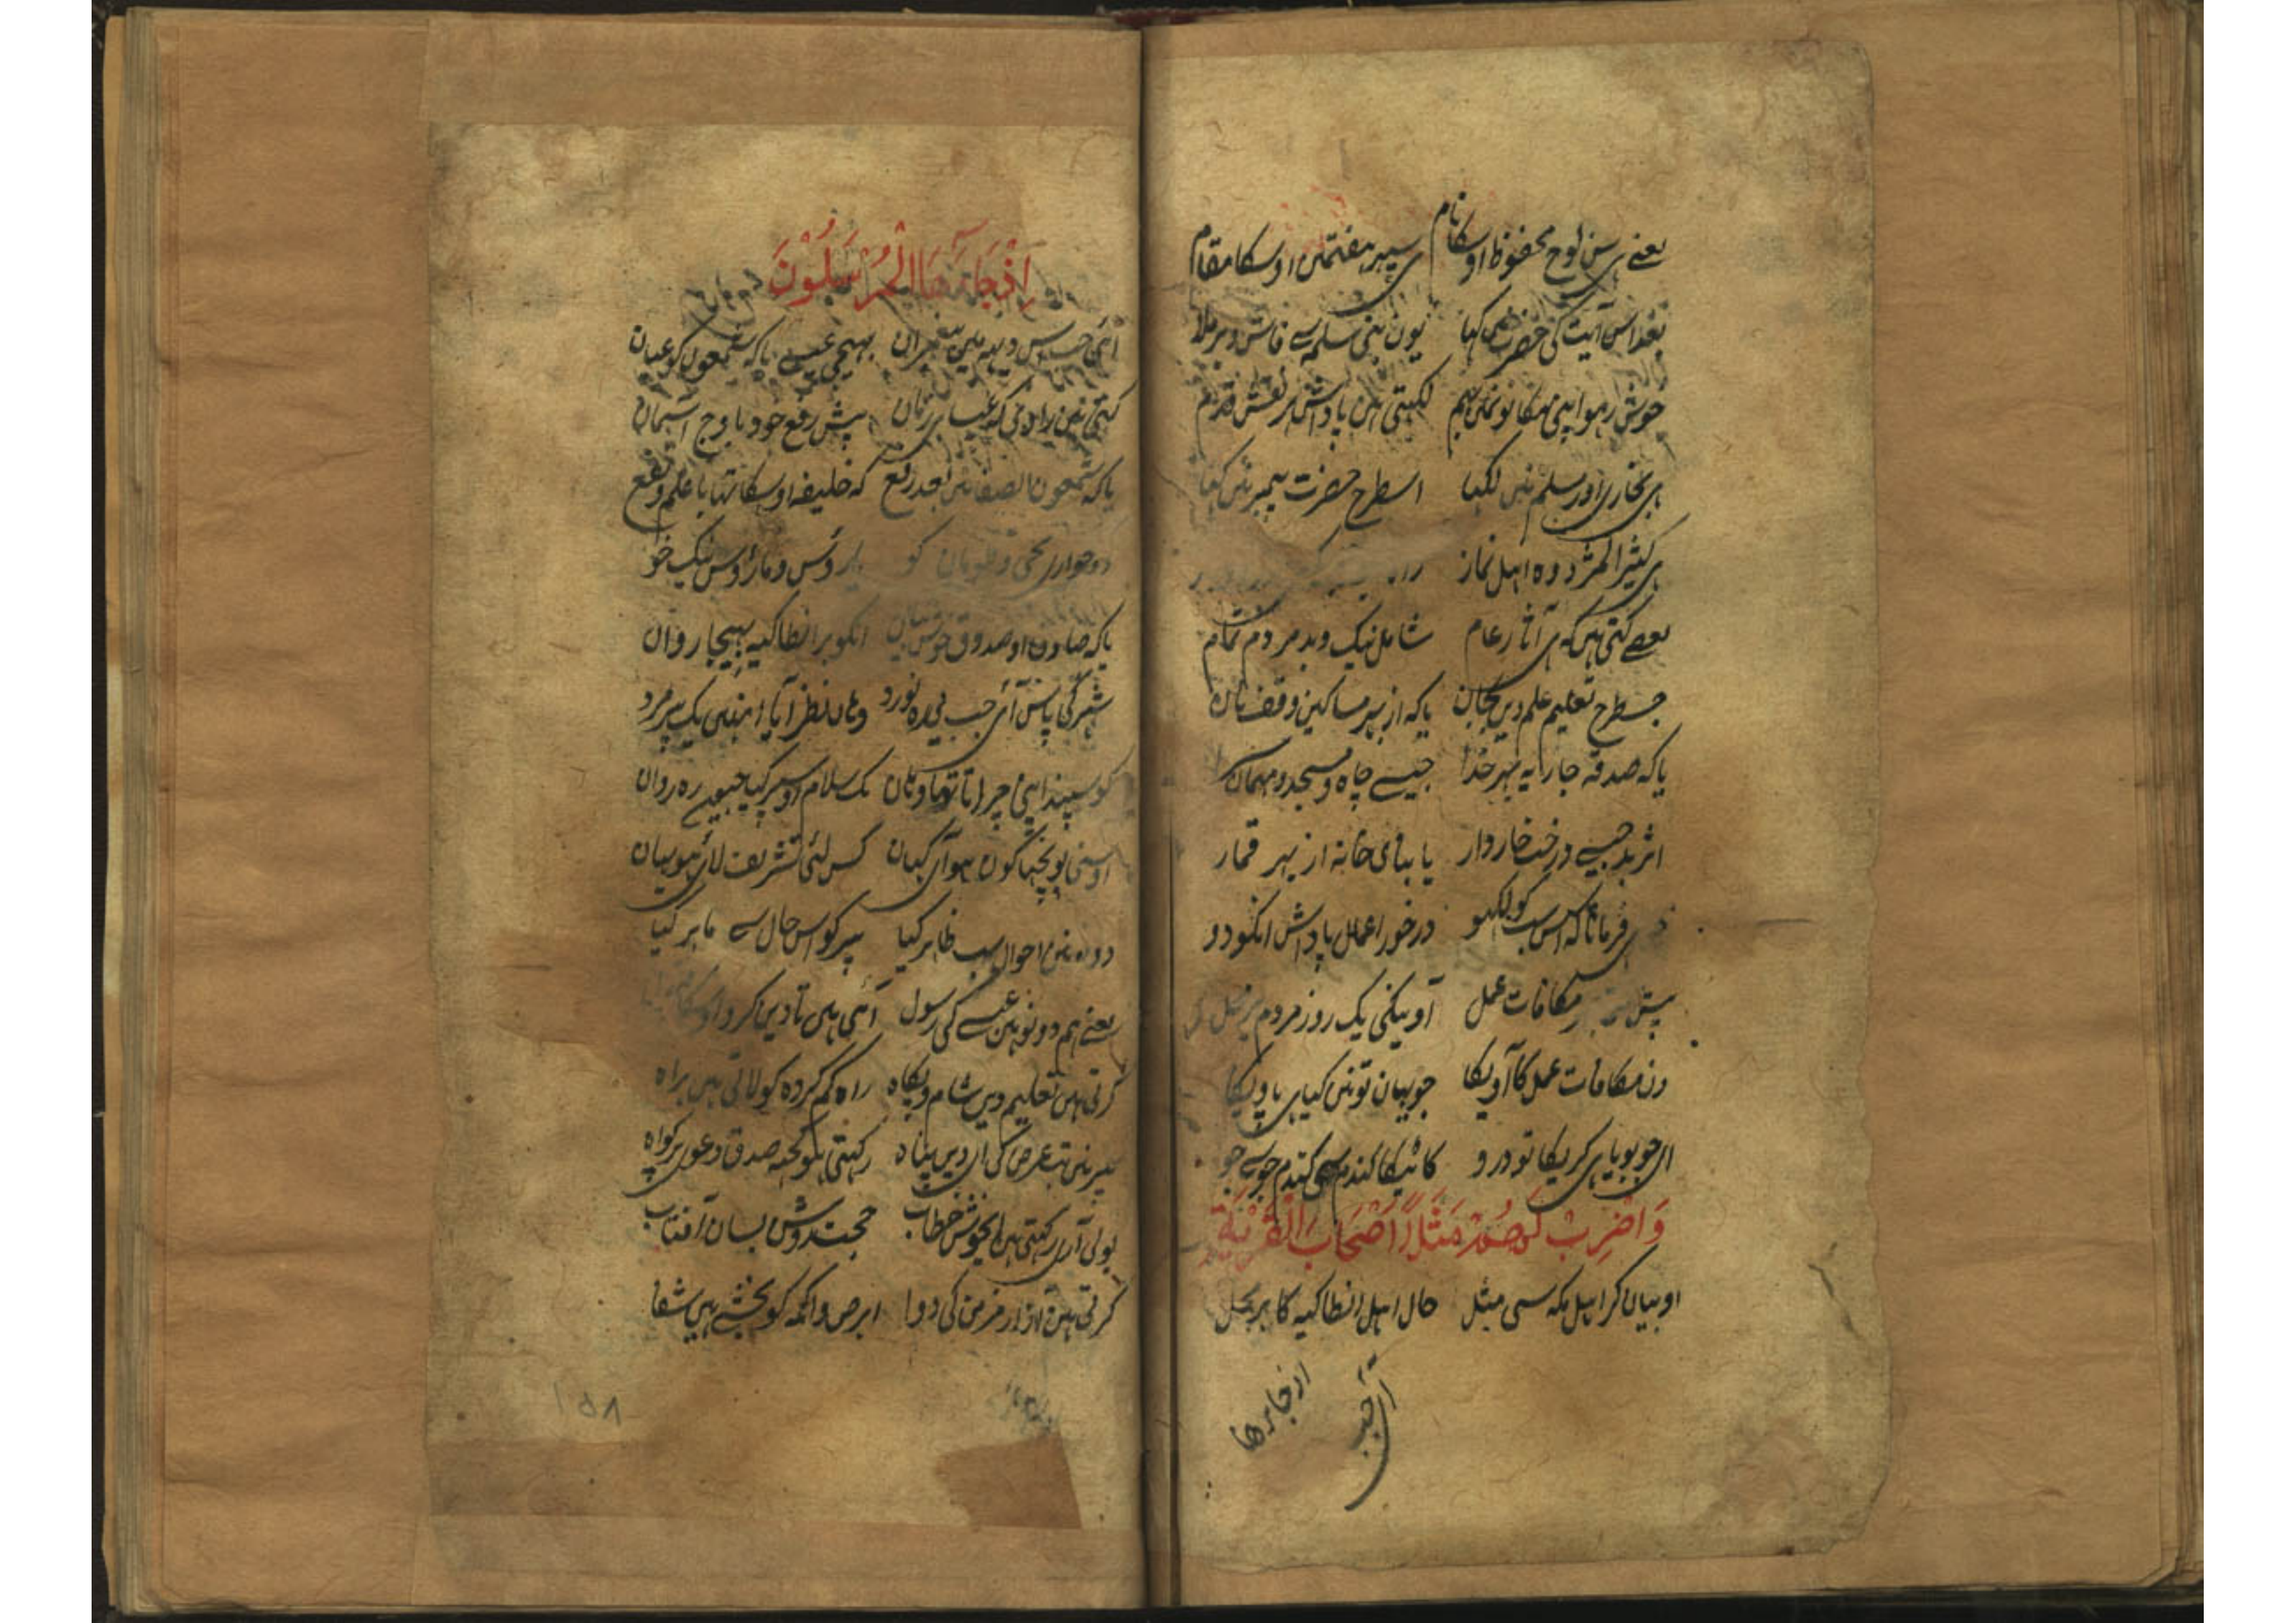 یعنے ہی سن لوح محفوظ اوسکا نام ہی سپہر ہفتمین اوسکا مقام
بعد اس آیت کی حضرت نی کہا یون بنی سلمہ سے فاش و برملا
خوش رہو اپنی مکانو نمین بہم لکہتی ہین پاداش ہر نقش قدم
ہی بخاری اور مسلم نین لکہا اسطرح حضرت پیمبر نین کہا
ہی کثیر المزد وہ اہل نماز راہ
بعضے کہتی ہین کہ ہی آثار عام شامل نیک و بد مردم تمام
جسطرح تعلیم علم دین بجان یا کہ از بہر مساکین وقف نان
یا کہ صدقہ جاریہ بہر خدا جیسے چاہ و مسجد و مہمان
اثر بد جیسے درخت خاردار یا بنای خانہ از بہر قمار
ہی فرماتا کہ اس سب کو لکہو درخور اعمال پاداش انکو دو
مکافات عمل آویگی یک روز مردم بر
دن مکافات عمل کا آویگا جو یہان تونین کیا ہی پاویگا
ای جو بویا ہی کریگا تو درو کاٹیگا گندم سی گندم جو سے جو
وَاضْرِبْ لَهُمْ مَثَلًا أَصْحَابَ الْقَرْيَةِ
او بیان کر اہل مکہ سی مثل حال اہل انطاکیہ کا بر محل
اذ جاءها
آی جب
إِذْ جَاءَهَا الْمُرْسَلُونَ
آئی جب اوس دیہ مین پیغمبران بہیجی عیسے یا کہ شمعون کو عیان
کہتی ہین راوی کہ عیسا بر زمان پیش رفع خود باوج آسمان
یا کہ شمعون الصفا نین بعد رفع کہ خلیفہ اوسکا تہا با علم و نفع
دو حواری یحی و تومان کو یا روس و ماروس نیک خو
یا کہ صادق او صدوق خوش بیان انکو بر انطاکیہ بہیجا روان
شہر کی پاس آئی جب رہ نورد وہان نظر آیا انہین یک پیر مرد
گوسپند اپنی چراتا تہا وہان یک سلام اوسپر کیا جیون رہ روان
اوسنی پوچہا کون ہو آئی کہان کس لئی تشریف لائی ہو بیان
دونو نین احوال سب ظاہر کیا پیر کو اس حال سے ماہر کیا
یعنے ہم دونو ہین عیسے کی رسول آئی ہین تا دین کرو اوسکا قبول
کرتی ہین تعلیم دین شام و پگاہ راہ گم کردہ کو لاتی ہین براہ
پیر نین تب عرض کی ای دین پناہ رکہتی ہو کچہ صدق دعوی پر گواہ
بولی آری رکہتی ہین ای خوش خطاب حجت روشن بسان آفتاب
کرتی ہین آزار مزمن کی دوا ابرص و اکمہ کو بخشے ہین شفا
۱۵۸